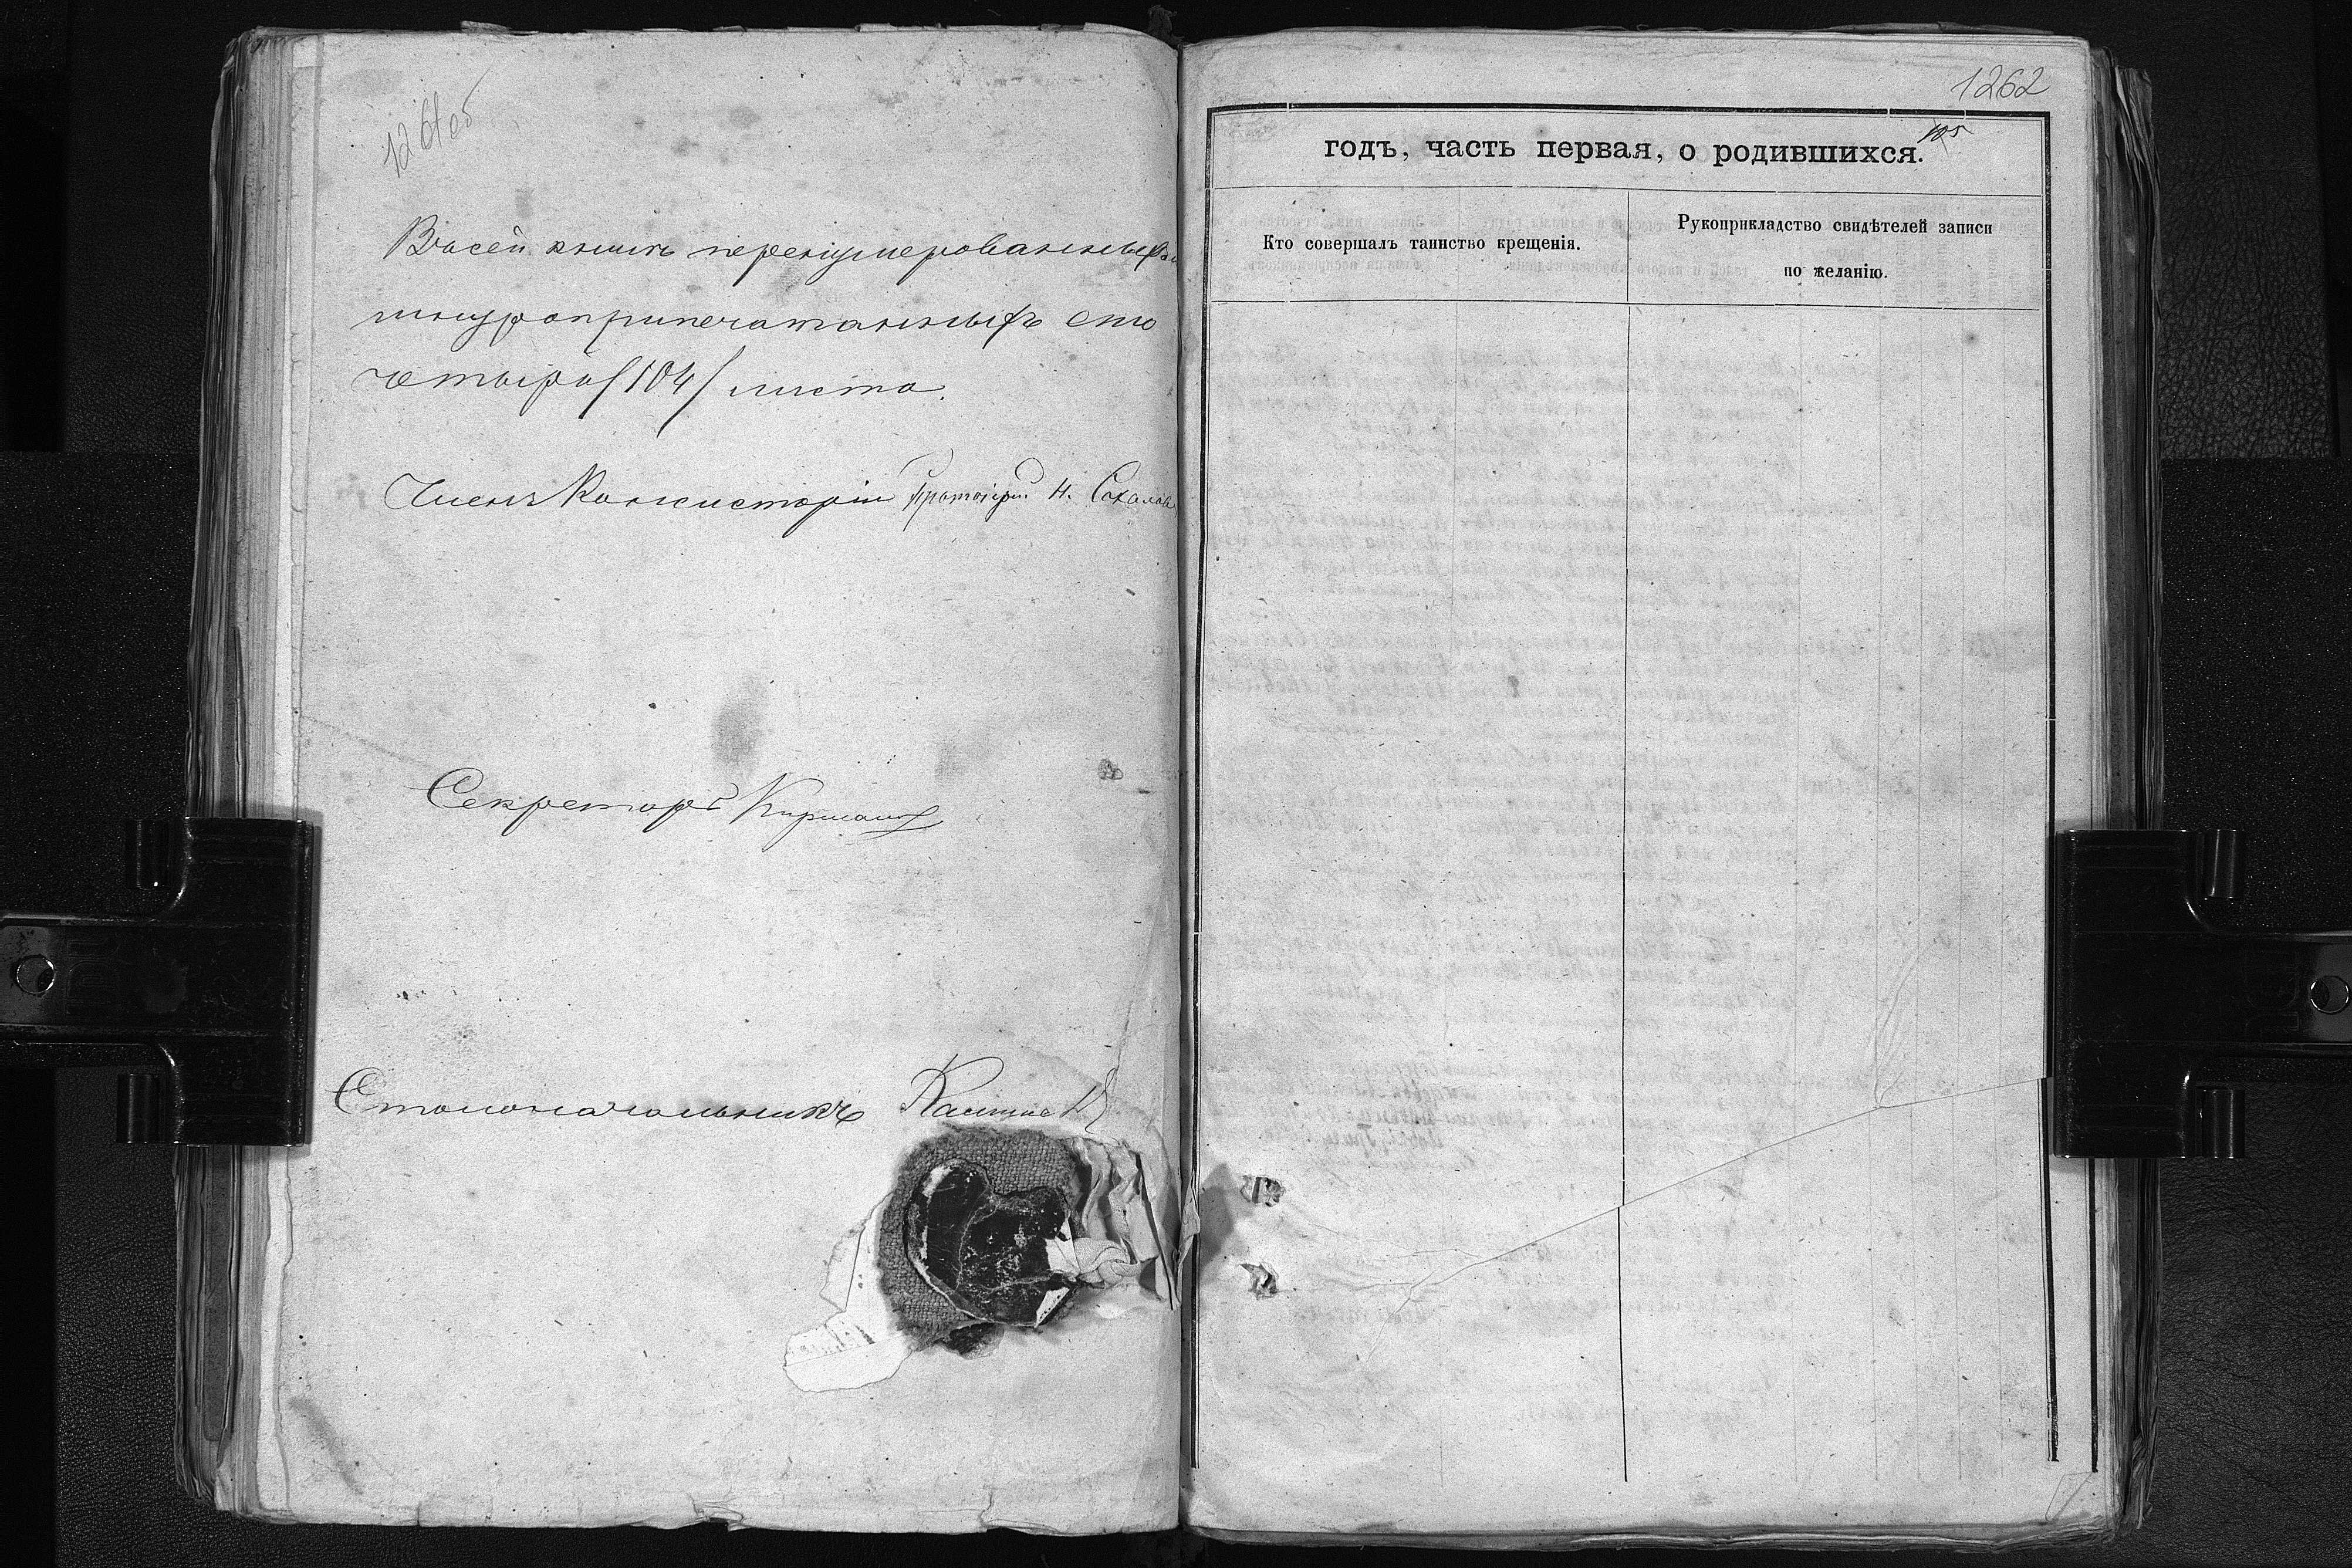 1261 об
Въ сей книгѣ перенумерованныхъ и
шнуроприпечатанныхъ сто
четыре /104/ листа.
Членъ Консисторіи Протоіерей Н. Соколовъ
Секретарь
Столоначальникъ
1262
105
годъ, часть первая, о родившихся.
Кто совершалъ таинство крещенія.
Рукоприкладство свидѣтелей записи
по желанію.